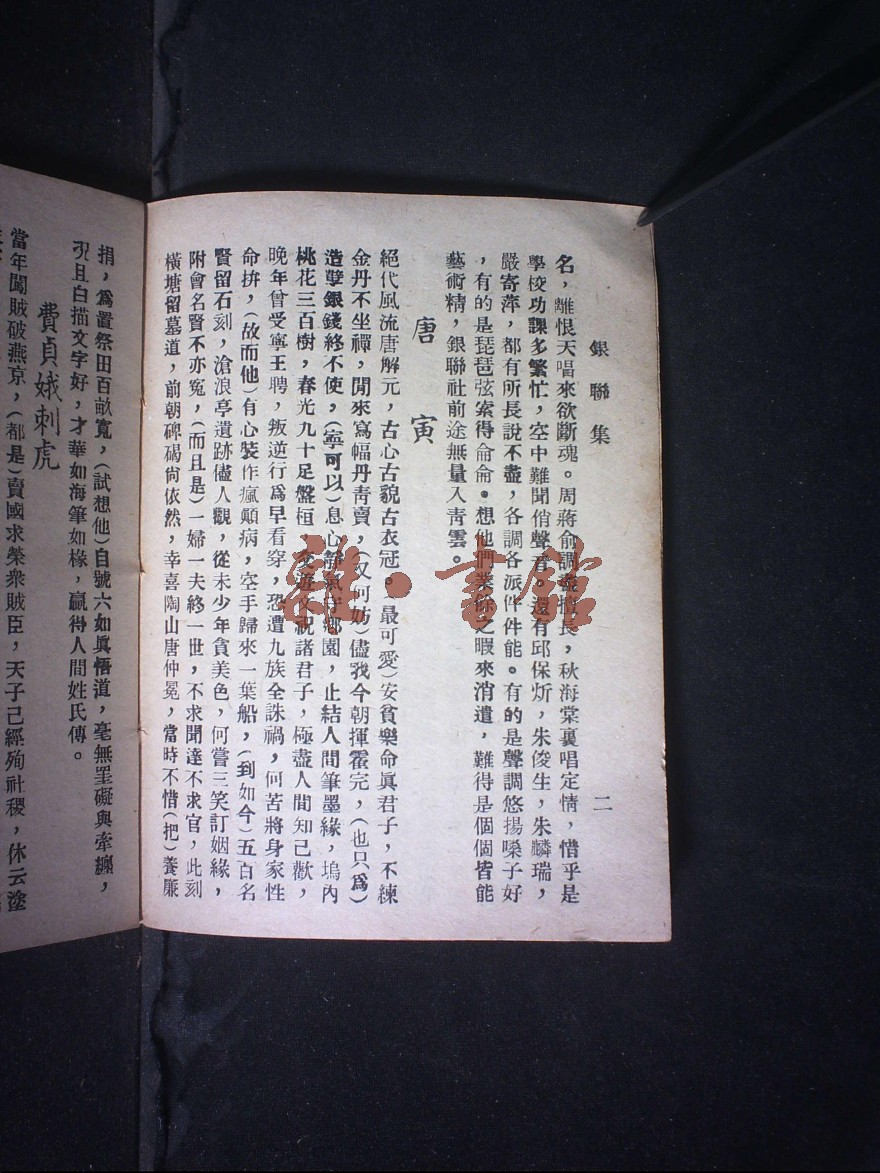 銀聯集
二
名，離恨天唱來欲斷魂。周蔣俞調盡擅長，秋海棠裏唱定情，惜乎是
學校功課多繁忙，空中難聞俏聲音。還有邱保炘，朱俊生，朱麟瑞，
嚴寄萍，都有所長說不盡，各調各派件件能。有的是聲調悠揚嗓子好
，有的是琵琶弦索得侖侖。想他們業餘之暇來消遣，難得是個個皆能
藝術精，銀聯社前途無量入青雲。
唐寅
絕代風流唐解元，古心古貌古衣冠。最可愛）安貧樂命眞君子，不練
金丹不坐禪，閒來寫幅丹靑賣，（又何妨）儘我今朝揮霍完，（也只爲）
造孽銀錢終不使，（寧可以）息心靜氣守鄉園，止結人間筆墨緣，塢內
桃花三百樹，春光九十足盤桓，交遊文祝諸君子，極盡人間知己歡，
晚年曾受寧王聘，叛逆行爲早看穿，恐遭九族全誅禍，何苦將身家性
命拚，（故而他）有心裝作瘋顚病，空手歸來一葉船，（到如今）五百名
賢留石刻，滄浪亭遺跡儘人觀，從未少年貪美色，何嘗三笑訂姻緣，
附會名賢不亦寃，（而且是）一婦一夫終一世，不求聞達不求官，此刻
橫塘留墓道，前朝碑碣尙依然，幸喜陶山唐仲冕，當時不惜（把）養廉
捐，爲置祭田百畝寬，（試想他）自號六如眞悟道，毫無罣礙與牽纏，
况且白描文字好，才華如海筆如椽，贏得人間姓氏傳。
費貞娥刺虎
當年闖賊破燕京，（都是）賣國求榮衆賊臣，天子已經殉社稷，休云塗
雜·書館